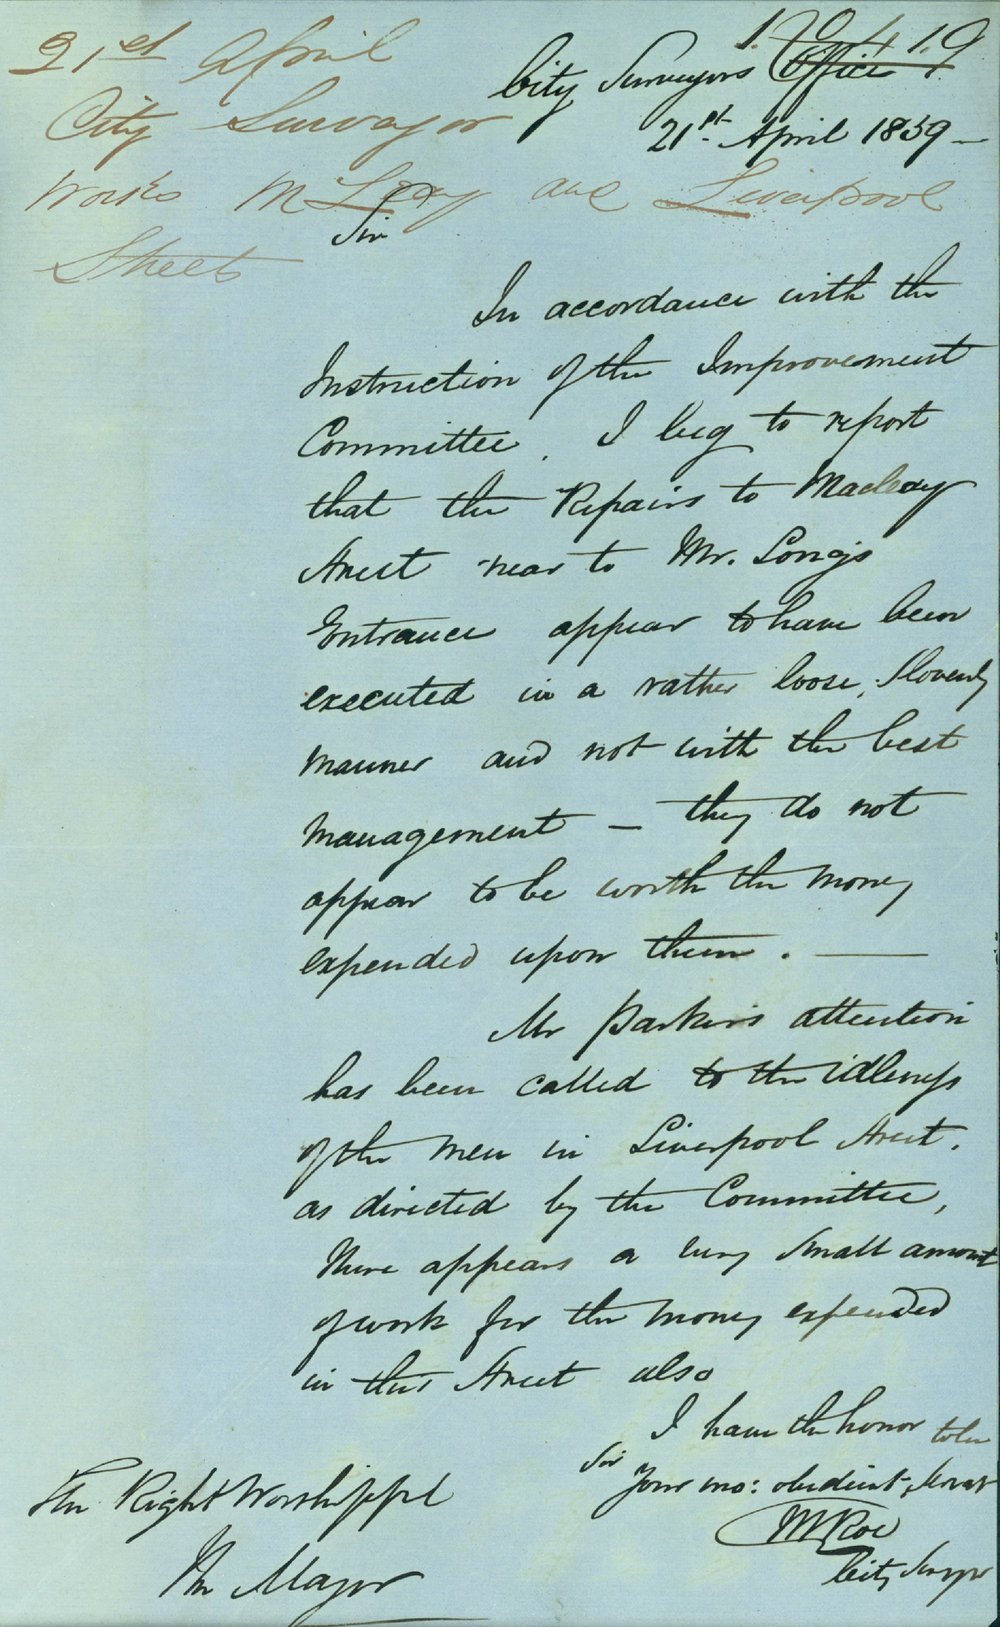 21st April
City Surveyor
Works McLeay and Liverpool
Streets
City Surveyors Office
21st April 1859 —
Sir
In accordance with the
Instruction of the Improvement
Committee. I beg to report
that the Repairs to Macleay
Street near to Mr. Long's
Entrance appear to have been
executed in a rather loose, Slovenly
manner and not with the best
management — they do not
appear to be worth the money
expended upon them. —
Mr Parker's attention
has been called to the idleness
of the men in Liverpool Street.
as directed by the Committee,
There appears a very Small amount
of work for the money expended
in this Street also
I have the honor to be
Sir
Your mo: obedient Servt
City Survyr
The Right Worshippl
The Mayor